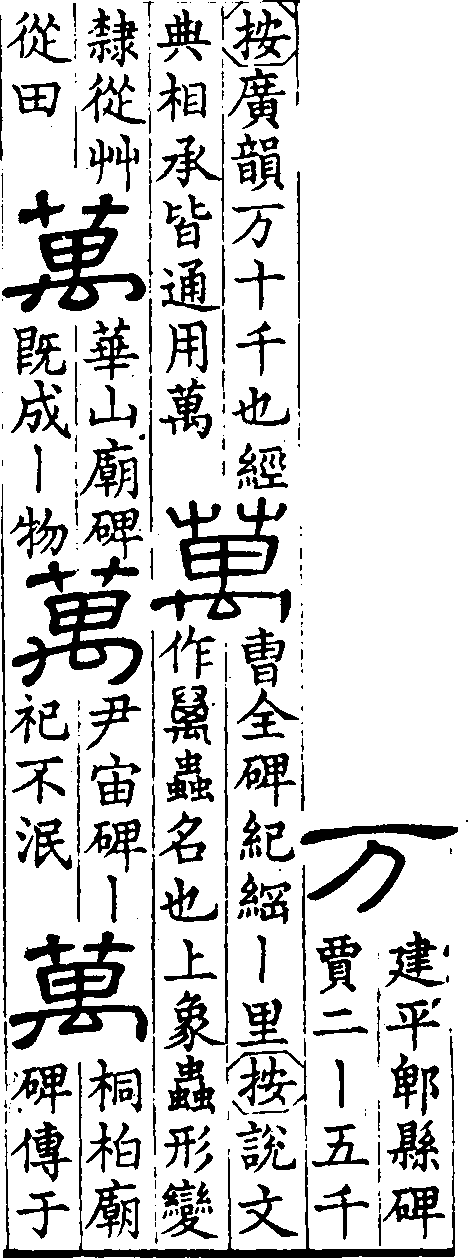 万
建平郫縣碑
賈二丨五千
按廣韻万十千也經
典相承皆通用萬
萬
曺全碑紀綱丨里按說文
作蟲名也上象蟲形變
隸從艸
從田
萬
華山廟碑
既成丨物
萬
尹宙碑丨
祀不泯
萬
桐柏廟
碑傳于